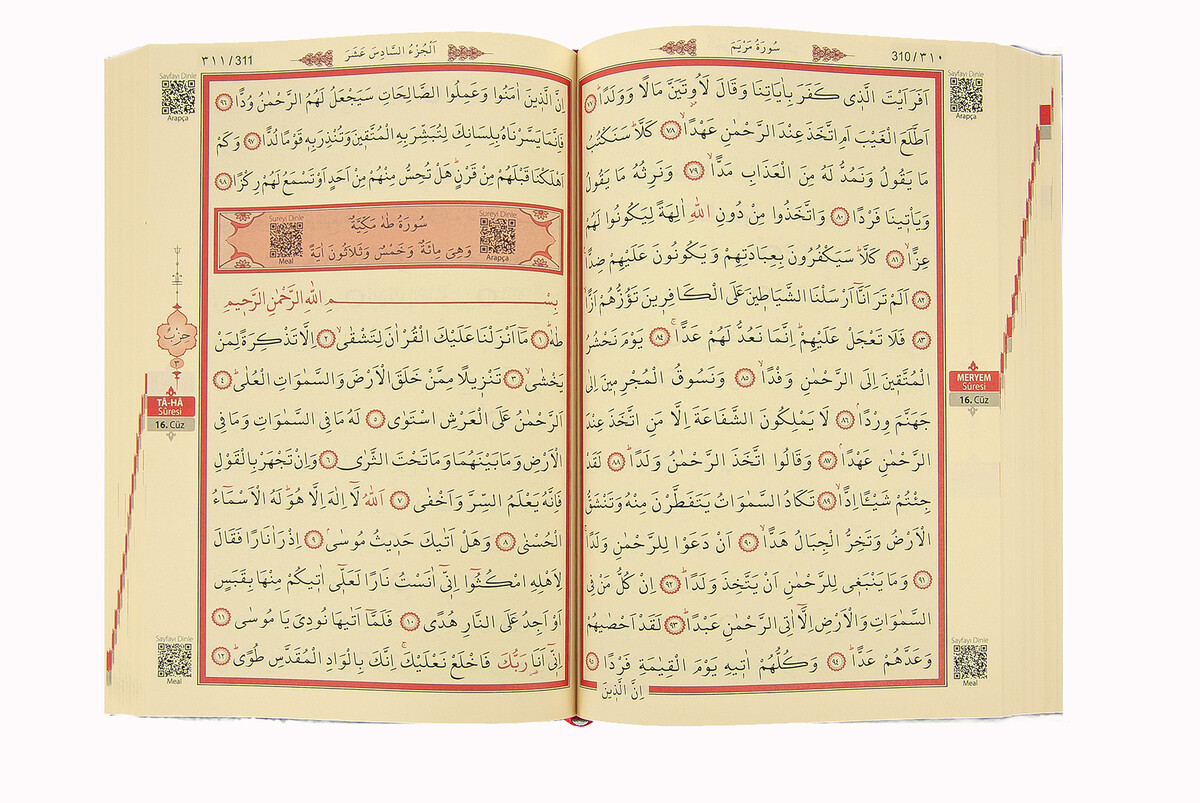 310/٣١٠
سُورَةُ مَرْيَمَ
Sayfayı Dinle
Arapça
اَفَرَاَيْتَ الَّذ۪ي كَفَرَ بِاٰيَاتِنَا وَقَالَ لَاُو۫تَيَنَّ مَالًا وَوَلَدًاۜ ﴿٧٧﴾
اَطَّلَعَ الْغَيْبَ اَمِ اتَّخَذَ عِنْدَ الرَّحْمٰنِ عَهْدًاۙ ﴿٧٨﴾ كَلَّاۜ سَنَكْتُبُ
مَا يَقُولُ وَنَمُدُّ لَهُ مِنَ الْعَذَابِ مَدًّاۙ ﴿٧٩﴾ وَنَرِثُهُ مَا يَقُولُ
وَيَأْت۪ينَا فَرْدًا ﴿٨٠﴾ وَاتَّخَذُوا مِنْ دُونِ اللّٰهِ اٰلِهَةً لِيَكُونُوا لَهُمْ
عِزًّاۙ ﴿٨١﴾ كَلَّاۜ سَيَكْفُرُونَ بِعِبَادَتِهِمْ وَيَكُونُونَ عَلَيْهِمْ ضِدًّا۟
﴿٨٢﴾ اَلَمْ تَرَ اَنَّٓا اَرْسَلْنَا الشَّيَاط۪ينَ عَلَى الْكَافِر۪ينَ تَؤُزُّهُمْ اَزًّاۙ
﴿٨٣﴾ فَلَا تَعْجَلْ عَلَيْهِمْۜ اِنَّمَا نَعُدُّ لَهُمْ عَدًّاۚ ﴿٨٤﴾ يَوْمَ نَحْشُرُ
الْمُتَّق۪ينَ اِلَى الرَّحْمٰنِ وَفْدًاۙ ﴿٨٥﴾ وَنَسُوقُ الْمُجْرِم۪ينَ اِلٰى
جَهَنَّمَ وِرْدًاۢ ﴿٨٦﴾ لَا يَمْلِكُونَ الشَّفَاعَةَ اِلَّا مَنِ اتَّخَذَ عِنْدَ
الرَّحْمٰنِ عَهْدًاۢ ﴿٨٧﴾ وَقَالُوا اتَّخَذَ الرَّحْمٰنُ وَلَدًاۜ ﴿٨٨﴾ لَقَدْ
جِئْتُمْ شَيْـًٔا اِدًّاۙ ﴿٨٩﴾ تَكَادُ السَّمٰوَاتُ يَتَفَطَّرْنَ مِنْهُ وَتَنْشَقُّ
الْاَرْضُ وَتَخِرُّ الْجِبَالُ هَدًّاۙ ﴿٩٠﴾ اَنْ دَعَوْا لِلرَّحْمٰنِ وَلَدًاۚ
﴿٩١﴾ وَمَا يَنْبَغ۪ي لِلرَّحْمٰنِ اَنْ يَتَّخِذَ وَلَدًاۜ ﴿٩٢﴾ اِنْ كُلُّ مَنْ فِي
السَّمٰوَاتِ وَالْاَرْضِ اِلَّٓا اٰتِي الرَّحْمٰنِ عَبْدًاۜ ﴿٩٣﴾ لَقَدْ اَحْصٰيهُمْ
وَعَدَّهُمْ عَدًّاۜ ﴿٩٤﴾ وَكُلُّهُمْ اٰت۪يهِ يَوْمَ الْقِيٰمَةِ فَرْدًا ﴿٩٥﴾
اِنَّ الَّذ۪ينَ
MERYEM
Sûresi
16. Cüz
Sayfayı Dinle
Meal
٣١١/311
اَلْجُزْءُ السَّادِسَ عَشَرَ
Sayfayı Dinle
Arapça
اِنَّ الَّذ۪ينَ اٰمَنُوا وَعَمِلُوا الصَّالِحَاتِ سَيَجْعَلُ لَهُمُ الرَّحْمٰنُ وُدًّا ﴿٩٦﴾
فَاِنَّمَا يَسَّرْنَاهُ بِلِسَانِكَ لِتُبَشِّرَ بِهِ الْمُتَّق۪ينَ وَتُنْذِرَ بِه۪ قَوْمًا لُدًّا ﴿٩٧﴾ وَكَمْ
اَهْلَكْنَا قَبْلَهُمْ مِنْ قَرْنٍۜ هَلْ تُحِسُّ مِنْهُمْ مِنْ اَحَدٍ اَوْ تَسْمَعُ لَهُمْ رِكْزًا ﴿٩٨﴾
Sureyi Dinle
Arapça
سُورَةُ طٰهٰ مَكِّيَّةٌ
وَهِيَ مِائَةٌ وَخَمْسٌ وَثَلَاثُونَ اٰيَةً
Sureyi Dinle
Meal
بِسْــــــــــمِ اللّٰهِ الرَّحْمٰنِ الرَّح۪يمِ
طٰهٰۜ ﴿١﴾ مَٓا اَنْزَلْنَا عَلَيْكَ الْقُرْاٰنَ لِتَشْقٰىۙ ﴿٢﴾ اِلَّا تَذْكِرَةً لِمَنْ
يَخْشٰىۙ ﴿٣﴾ تَنْز۪يلًا مِمَّنْ خَلَقَ الْاَرْضَ وَالسَّمٰوَاتِ الْعُلٰىۜ ﴿٤﴾
اَلرَّحْمٰنُ عَلَى الْعَرْشِ اسْتَوٰى ﴿٥﴾ لَهُ مَا فِي السَّمٰوَاتِ وَمَا فِي
الْاَرْضِ وَمَا بَيْنَهُمَا وَمَا تَحْتَ الثَّرٰى ﴿٦﴾ وَاِنْ تَجْهَرْ بِالْقَوْلِ
فَاِنَّهُ يَعْلَمُ السِّرَّ وَاَخْفٰى ﴿٧﴾ اَللّٰهُ لَٓا اِلٰهَ اِلَّا هُوَۜ لَهُ الْاَسْمَٓاءُ
الْحُسْنٰى ﴿٨﴾ وَهَلْ اَتٰيكَ حَد۪يثُ مُوسٰىۢ ﴿٩﴾ اِذْ رَاٰ نَارًا فَقَالَ
لِاَهْلِهِ امْكُثُٓوا اِنّ۪ٓي اٰنَسْتُ نَارًا لَعَلّ۪ٓي اٰت۪يكُمْ مِنْهَا بِقَبَسٍ
اَوْ اَجِدُ عَلَى النَّارِ هُدًى ﴿١٠﴾ فَلَمَّٓا اَتٰيهَا نُودِيَ يَا مُوسٰى ﴿١١﴾
اِنّ۪ٓي اَنَا۬ رَبُّكَ فَاخْلَعْ نَعْلَيْكَۚ اِنَّكَ بِالْوَادِ الْمُقَدَّسِ طُوًىۜ ﴿١٢﴾
حزب
٣
TÂ-HÂ
Sûresi
16. Cüz
Sayfayı Dinle
Meal